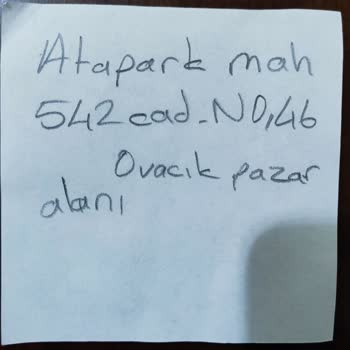 Atapark mah
542 cad. NO,46
Ovacık pazar
alanı